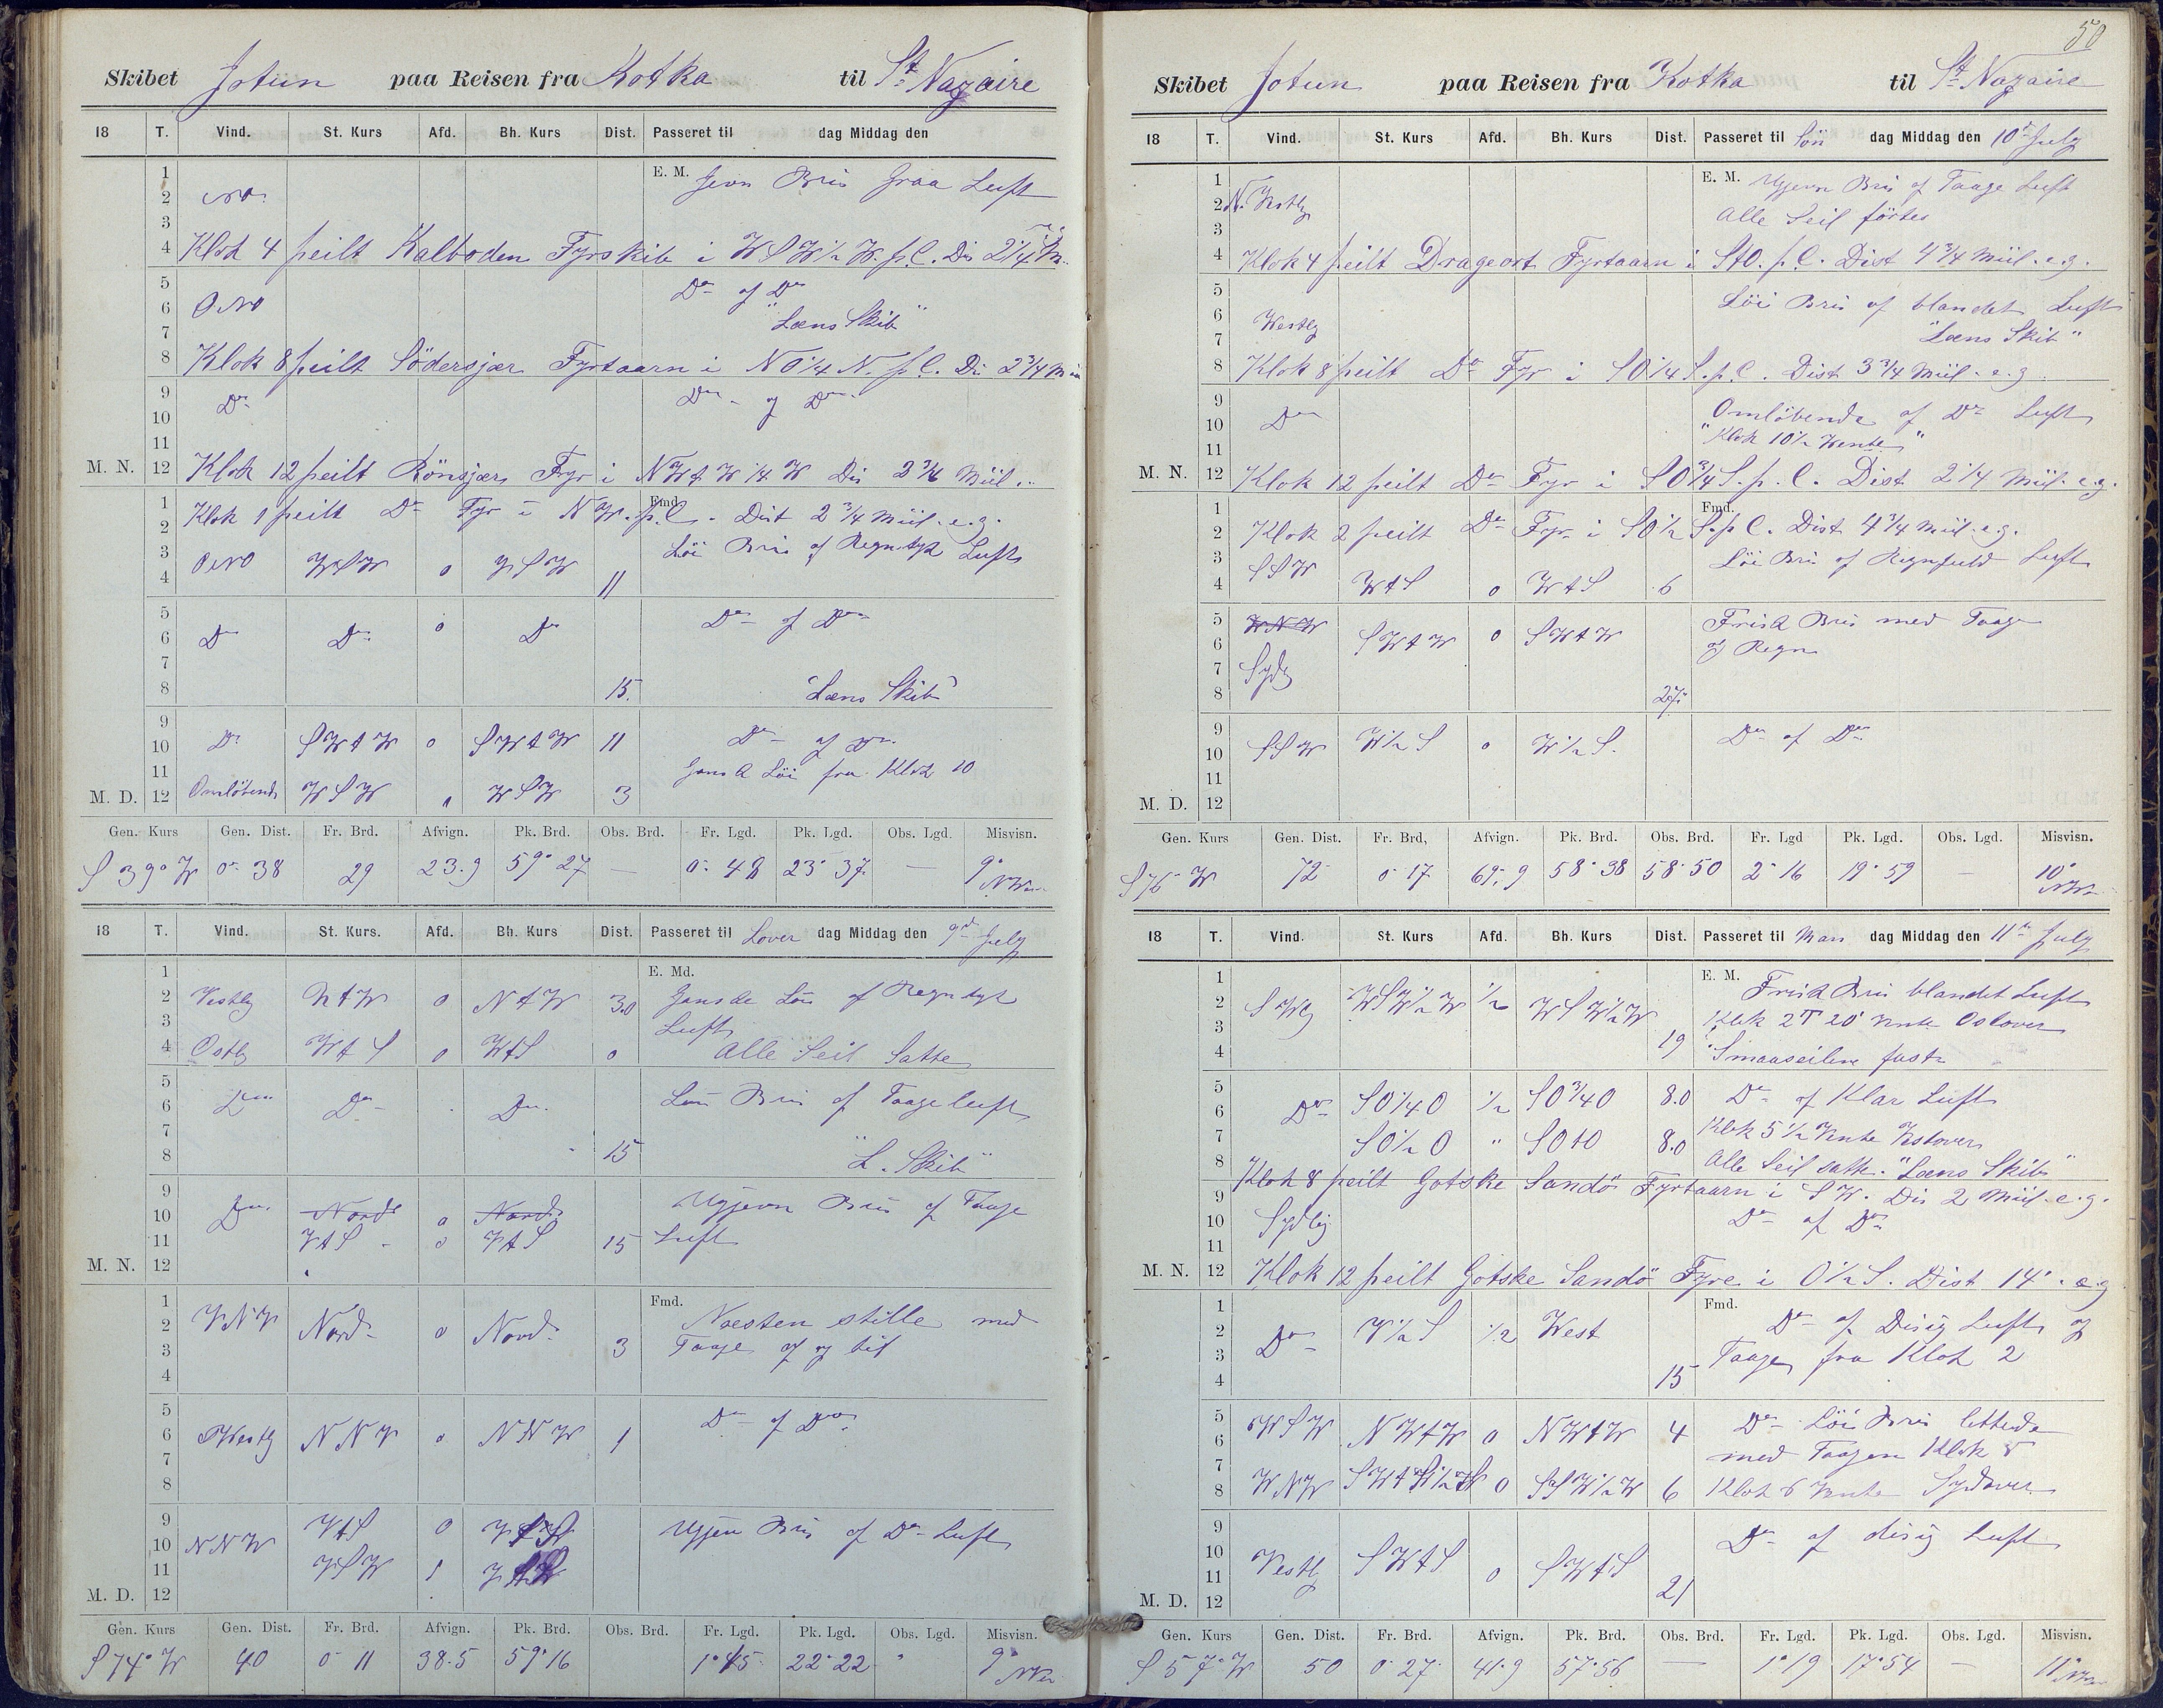 Skibet Jotun paa Reisen fra Kotka til St. Nazaire
18 T. Vind. St. Kurs Afd. Bh. Kurs Dist. Passeret til dag Middag den
1 E. M. Jevn Bris Graa Luft
2 NO.
3
4 Klok 4 peilt Kalboden Fyrskib i WSW½W. p.C. Dis 2¼ M.
5 Do of Do
6 ONO "Læns Skib"
7
8 Klok 8 peilt Södersjær Fyrtaarn i NO¼N. p.C. Di 2¾ Miil
9 Do - of Do
10 Do
11
M. N. 12 Klok 12 peilt Rönsjær Fyr i NWtW¼W Dis 2¾ Miil.
1 Fmd. Klok 1 peilt Do Fyr i NW. p.C. Dist 2¾ Miil. e.g.
2
3 ONO WSW 0 WSW Löi Bris of Regntyk Luft
4 11
5 Do of Do
6 Do Do 0 Do
7
8 15. "Læns Skib"
9 Do SWtW 0 SWtW 11 Do - of Do
10
11 Ganske Löi fra Klok 10
M. D. 12 Omlöbende WSW WSW 3
Gen. Kurs Gen. Dist. Fr. Brd. Afvign. Pk. Brd. Obs. Brd. Fr. Lgd. Pk. Lgd. Obs. Lgd. Misvisn.
S 39° W 38 29 23.9 59° 27 — 0° 48 23° 37 — 9° NW
18 T. Vind. St. Kurs. Afd. Bh. Kurs Dist. Passeret til Löver dag Middag den 9de July
1 E. Md.
2 Vestlig NtW 0 NtW 3.0 Ganske Löi of Regntyk
3 Luft
4 Ostlig WtS 0 WtS 0 Alle Seil Satte
5
6 Do Do Do Löi Bris of Taageluft
7
8 15 "L. Skib"
9
10 Do Nord 0 Nord Ujevn Bris of Taage
11 WtS 0 WtS 15 Luft
M. N. 12
1 Fmd.
2 WNW Nord 0 Nord Næsten stille med
3 3 Taage af og til
4
5
6 Westlig NNW 0 NNW 1 Do of Do
7
8
9 WtS 0
10 NNW Ujevn Bris of Do Luft
11 WSW 1
M. D. 12
Gen. Kurs Gen. Dist. Fr. Brd. Afvign. Pk. Brd. Obs. Brd. Fr. Lgd. Pk. Lgd. Obs. Lgd. Misvisn.
S 74° W 40 0° 11 38.5 59° 16 1° 15 22° 22 9° NW
50
Skibet Jotun paa Reisen fra Kotka til St. Nazaire
18 T. Vind. St. Kurs Afd. Bh. Kurs Dist. Passeret til Sön dag Middag den 10de July
1 E. M. Ujevn Bris of Taage Luft
2 N. Vestlig Alle Seil förtes
3
4 Klok 4 peilt Drageort Fyrtaarn i StO. p.C. Dist 4¾ Miil. e.g.
5 Löi Bris of blandet Luft
6 Westlig
7 "Læns Skib"
8 Klok 8 peilt Do Fyr i SO¼S. p.C. Dist 3¾ Miil. e.g.
9 Omlöbende of Do Luft
10 Do "Klok 10½ Vente"
11
M. N. 12 Klok 12 peilt Do Fyr i SO¾S. p.C. Dist 2¼ Miil. e.g.
1 Fmd.
2 Klok 2 peilt Do Fyr i SO½S. p.C. Dist 4¾ Miil. e.g.
3 SSW Löi Bris of Regnfuld Luft
4 WtS 0 WtS 6
5 WNW Frisk Bris med Taage
6 SWtW 0 SWtW og Regn
7 Sydlig
8 27.
9
10 SSW W½S 0 W½S. Do of Do
11
M. D. 12
Gen. Kurs Gen. Dist. Fr. Brd, Afvign. Pk. Brd. Obs. Brd. Fr. Lgd Pk. Lgd. Obs. Lgd. Misvisn.
S 76° W 72 0° 17 69.9 58° 38 58° 50 2° 16 19° 59 — 10° NW
18 T. Vind. St. Kurs Afd. Bh. Kurs Dist. Passeret til Man dag Middag den 11te July
1 E. M. Frisk Bris blandet Luft
2 SWlig WSW½W ½ WSW½W Klok 2T 20' Vente Ostover
3
4 19 Smaaseilene fast
5 Do SO¼O ½ SO¾O 8.0 Do of Klar Luft
6 Klok 5½ Vente Vestover
7 SO½O " SOtO 8.0
8 Alle Seil satte. "Læns Skib"
Klok 8 peilt Gotske Sandö Fyrtaarn i SW. Dis 2 Miil. e.g.
9 Do of Do
10 Sydlig
11
M. N. 12 Klok 12 peilt Gotske Sandö Fyre i O½S. Dist 14'. e.g
1 Fmd.
2 Do W½S ½ West Do of Disig Luft og
3 Taage fra Klok 2
4 15
5 WSW NWtW 0 NWtW 4 Do Löi Bris lettede
6 med Taagen Klok
7
8 WNW 0 SSW½W 6 Klok 6 Vente Sydover
9 Do of disig Luft
10 Vestlig SWtS 0 SWtS
11
M. D. 12 21
Gen. Kurs Gen. Dist. Fr. Brd. Afvign. Pk. Brd. Obs. Brd. Fr. Lgd. Pk. Lgd. Obs. Lgd. Misvisn.
S 57° W 50 0° 27 41.9 57° 56 — 1° 19 17° 54 — 11° NW